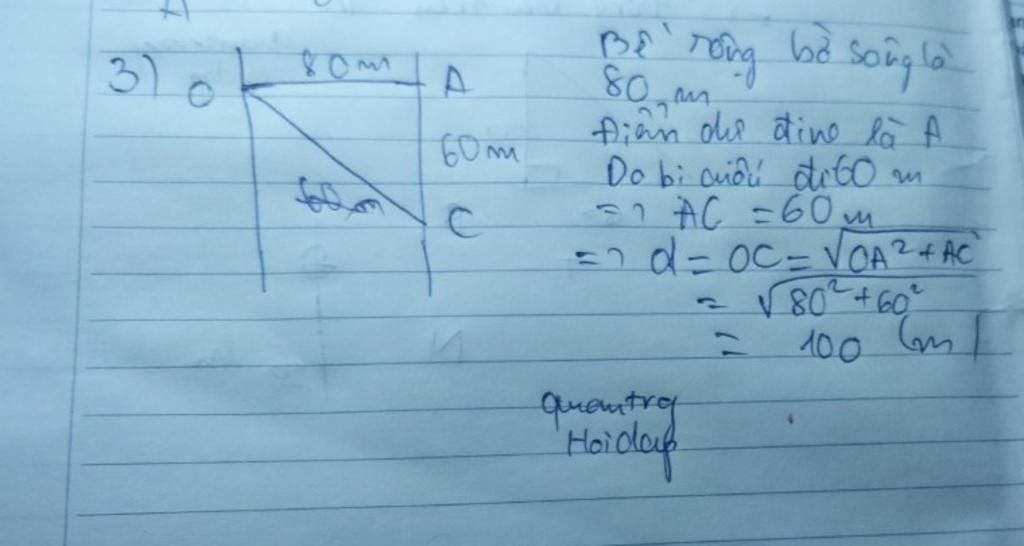 3) O 80m A
60m
60m
C
Bề rộng bờ sông là
80 m
Điểm dự định là A
Do bị cuối đi 60 m
=> AC = 60 m
=> d = OC = √OA² + AC²
= √80² + 60²
= 100 (m)
quantrg
Hoidap